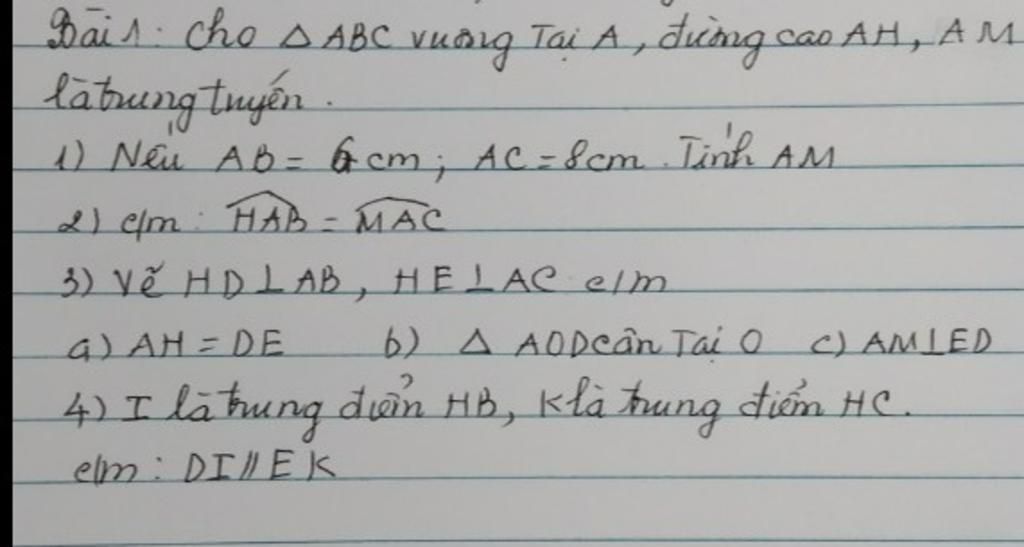 Bài 1: Cho △ ABC vuông Tại A, đường cao AH, AM
là trung tuyến.
1) Nếu AB = 6 cm; AC = 8cm. Tính AM
2) c/m: \widehat{HAB} = \widehat{MAC}
3) Vẽ HD ⊥ AB, HE ⊥ AC c/m
a) AH = DE b) △ AOD cân Tại O c) AM ⊥ ED
4) I là trung điểm HB, K là trung điểm HC.
c/m: DI // EK